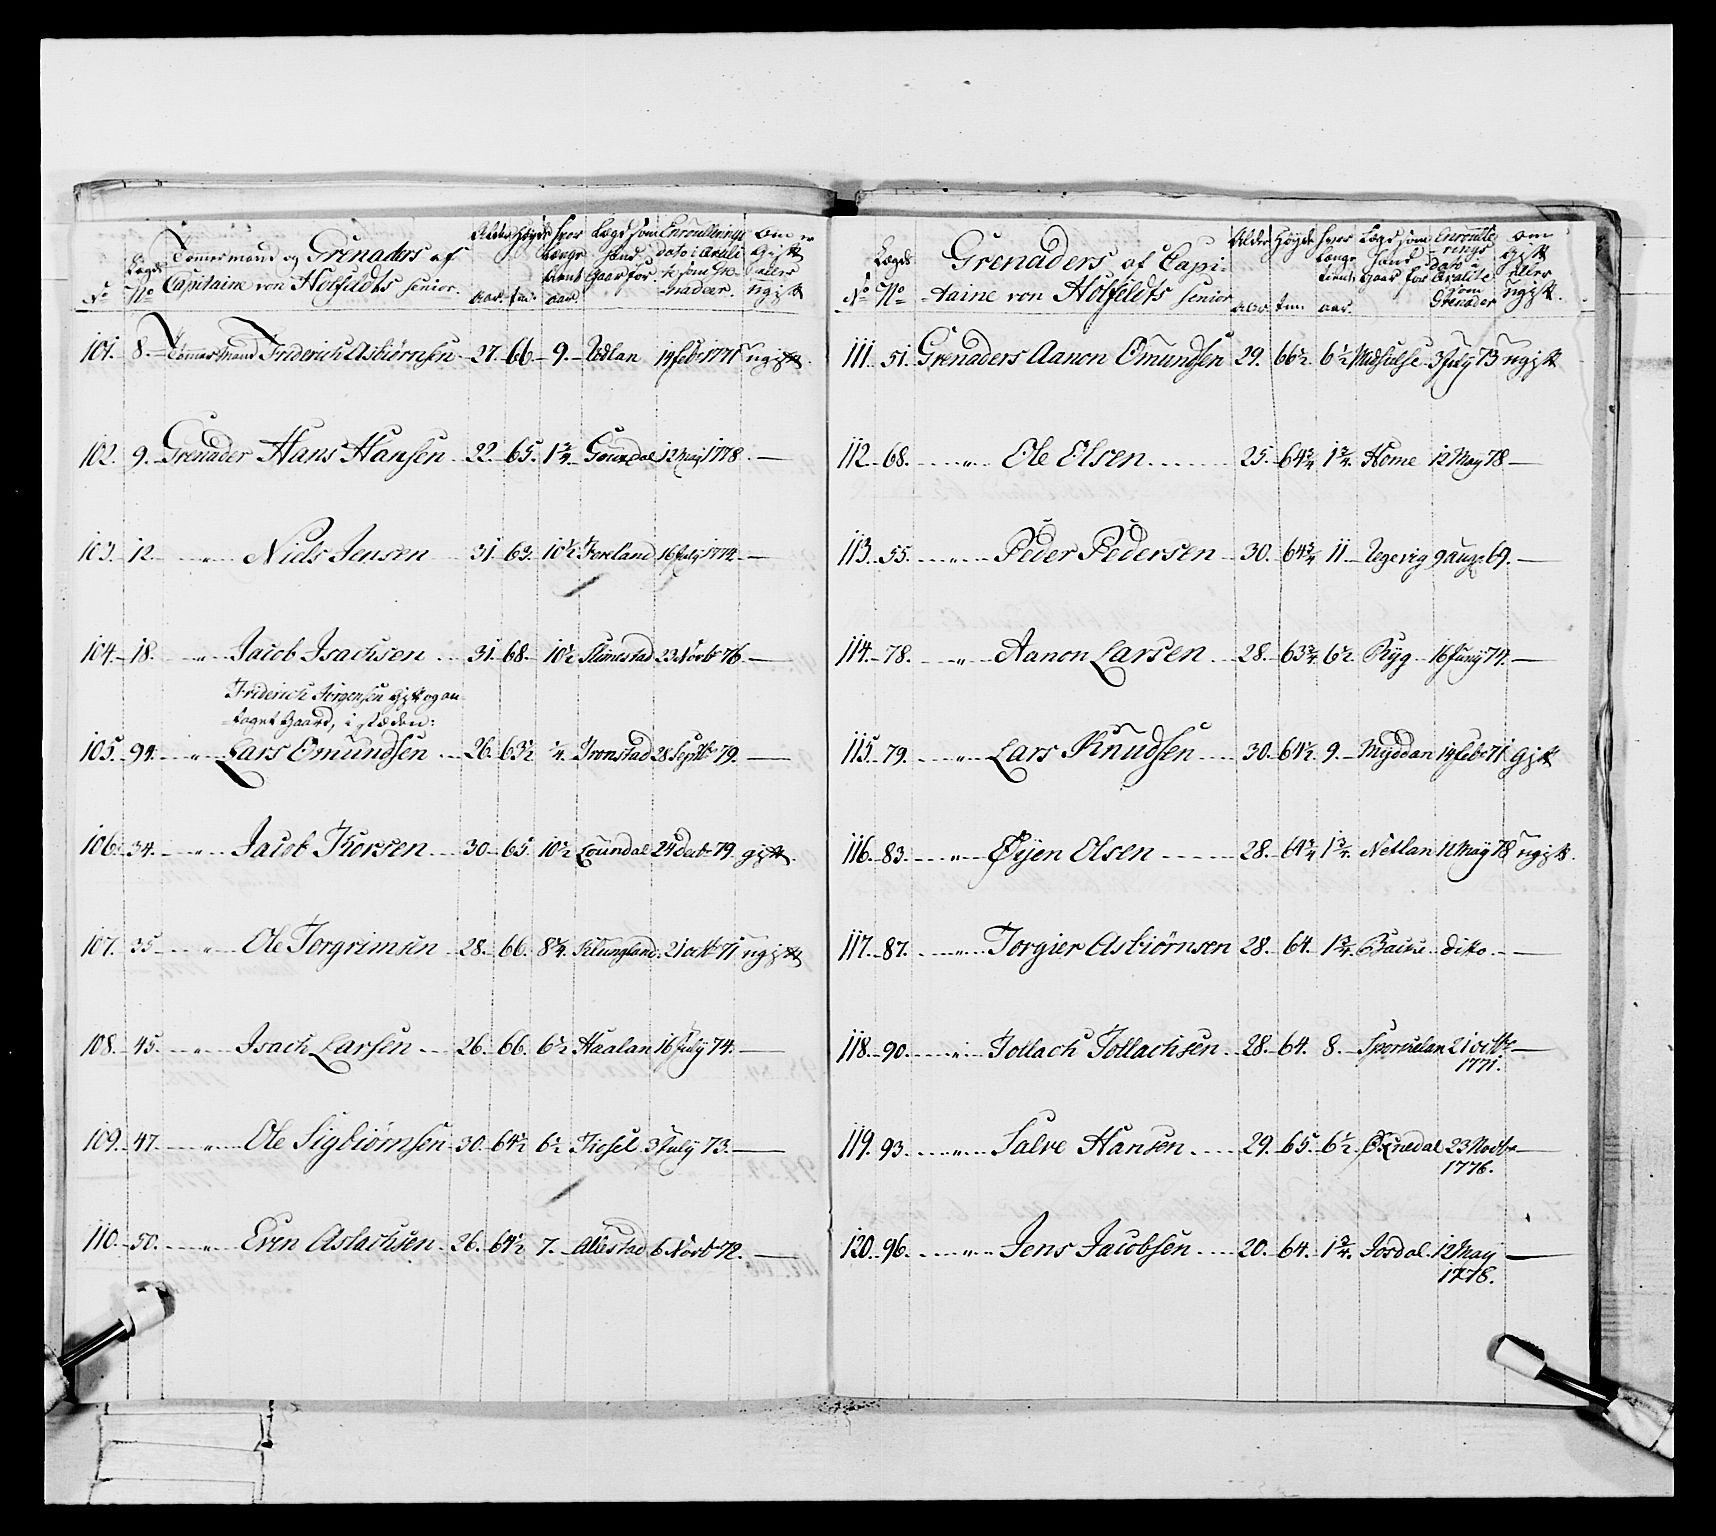 Tömermænd og Grenaders af
Capitaine von Holfeldts senior.
No
Lægds No
Alder aar.
Høyde tm.
hvor længe tient aar.
Lægd som hand gaar for.
Enroullerings Dato i qvalite som Grenadeer.
om er Gift eller ugift
101. 8. Tömermand Friderich Asbiørnsen 27. 66 9. Udlan 14 Feb 1771 ugift
102. 9. Grenader Hans Hansen 22. 65. 1 3/4 Goundal 12 May 1778. —
103. 12. " Niels Jensen 31. 63. 10 1/2 Foreland 16 July 1774. —
104. 18. " Jacob Isachsen 31. 68. 10 1/2 Slimestad 23 Novb 76. —
Friderich Jørgensen gift og an-
taget Gaard, i stæden:
105. 94. " Lars Omundsen 26. 63 1/2 1/4 Tronstad 28 Septbr 79. —
106. 34. " Jacob Thorsen 30. 65. 10 1/2 Loundal 24 Decb 79. gift
107. 35. " Ole Torgrimsen 28. 66. 8 3/4 Klungland 21 octb 71 ugift
108. 45. " Isach Larsen 26. 66. 6 1/2 Haalan 16 July 74. —
109. 47. " Ole Sigbiørnsen 30. 64 1/2 6 1/2 Tiosel 3 July 73. —
110. 50. " Even Aslachsen 26. 64 1/2 7. Allestad 6 Novb 72. —
Grenaders af Capi-
taine von Holfeldts senior
No
Lægds No
Alder aar
Høyde tm.
hvor længe tient aar.
Lægd som hand gaar for
Enroullerings dato i qvalite som Grenader
om gift eller ugift.
111. 51. Grenaders Aanon Omundsen 29. 66 1/2 6 1/2 Midsulse 3 July 73 ugift
112. 68. " Ole Olsen 25. 64 3/4 1 3/4. Home 12 May 78 —
113. 55. " Peder Pedersen 30. 64 3/4 11 Egevig 9 aug 69. —
114. 78. " Aanon Larsen 28. 63 3/4 6 1/2 Ryg 16 Juny 74. —
115. 79. " Lars Knudsen 30. 64 1/2. 9. Myddan 14 Febr 71 gift
116. 83. " Øyen Olsen 28. 64 3/4 1 3/4. Netlan 12 May 78 ugift.
117. 87. " Torgier Asbiørnsen 28. 64. 1 3/4. Backe ditto —
118. 90. " Tollach Tollachsen 28. 64. 8. Sporkelan 21 octbr —
1771.
119. 93. " Salve Hansen 29. 65. 6 1/2 Øxnedal 23 Novbr —
1776.
120. 96. " Jens Jacobsen 20. 64. 1 3/4. Josdal 12 May —
1778.